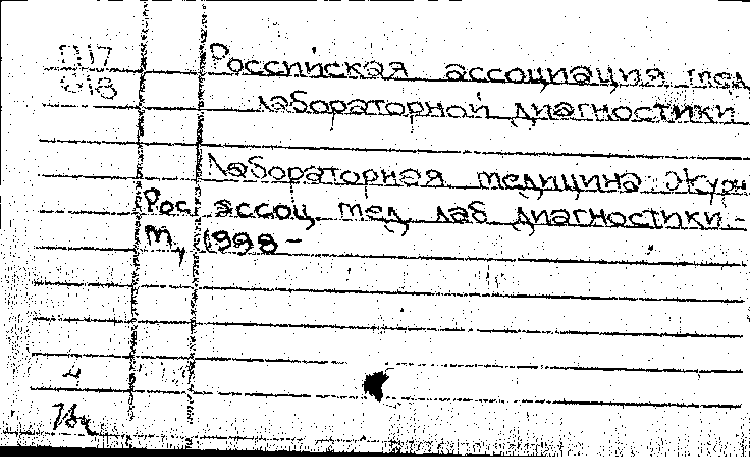 П17
618
Российская ассоциация мед
лабораторной диагностики
Лабораторная медицина: Журн
Рос. ассоц. мед. лаб диагностики.-
М, 1998 -
4